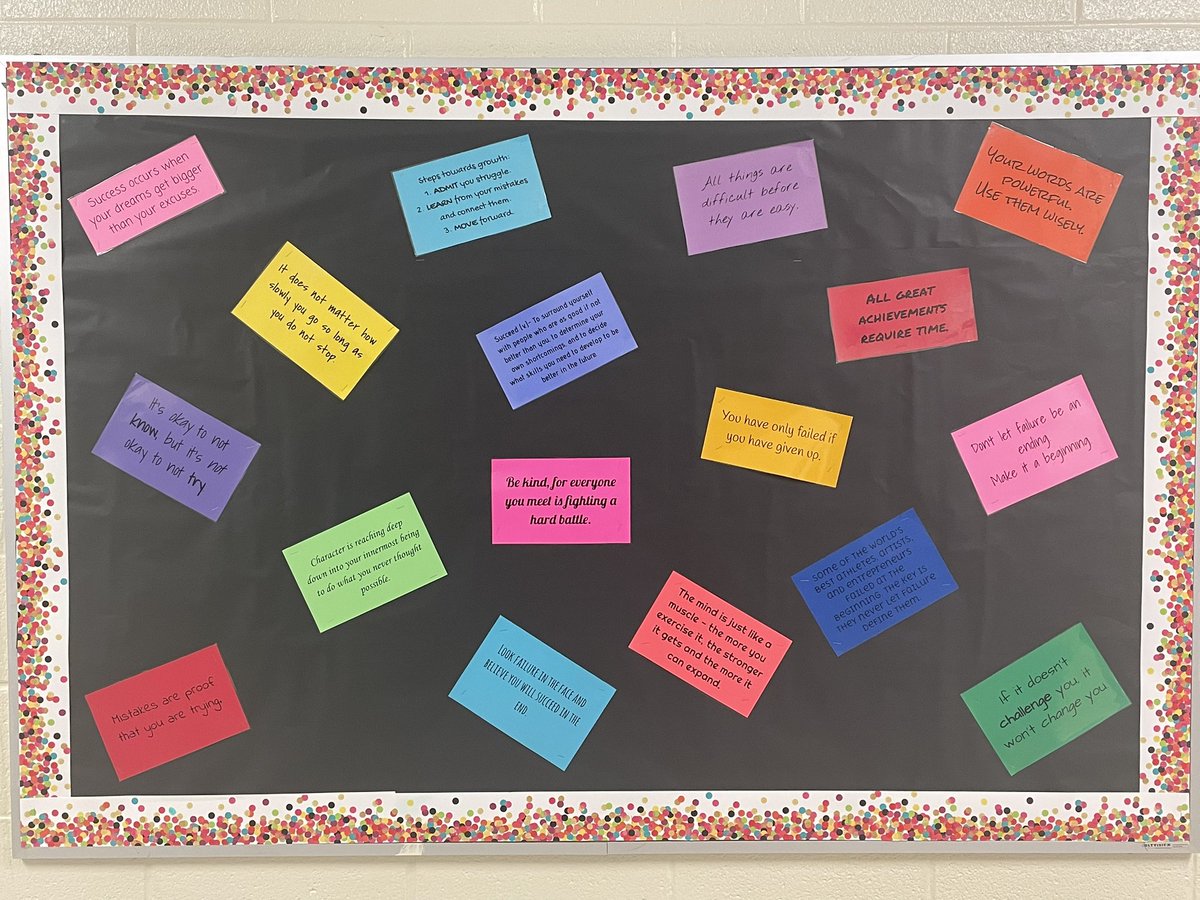 Success occurs when
your dreams get bigger
than your excuses.
Steps towards growth:
1. ADMIT you struggle.
2. LEARN from your mistakes
and connect them.
3. MOVE forward.
All things are
difficult before
they are easy.
YOUR WORDS ARE
POWERFUL.
USE THEM WISELY.
It does not matter how
slowly you go so long as
you do not stop
Succeed (v)- To surround yourself
with people who are as good if not
better than you, to determine your
own shortcomings, and to decide
what skills you need to develop to be
better in the future
ALL GREAT
ACHIEVEMENTS
REQUIRE TIME.
It's okay to not
know, but it's not
okay to not try
You have only failed if
you have given up.
Don't let failure be an
ending
Make it a beginning
Be kind, for everyone
you meet is fighting a
hard battle.
Character is reaching deep
down into your innermost being
to do what you never thought
possible.
SOME OF THE WORLD'S
BEST ATHLETES, ARTISTS,
AND ENTREPRENEURS
FAILED AT THE
BEGINNING. THE KEY IS
THEY NEVER LET FAILURE
DEFINE THEM.
The mind is just like a
muscle - the more you
exercise it, the stronger
it gets and the more it
can expand.
Mistakes are proof
that you are trying.
LOOK FAILURE IN THE FACE AND
BELIEVE YOU WILL SUCCEED IN THE
END.
If it doesn't
challenge you, it
won't change you